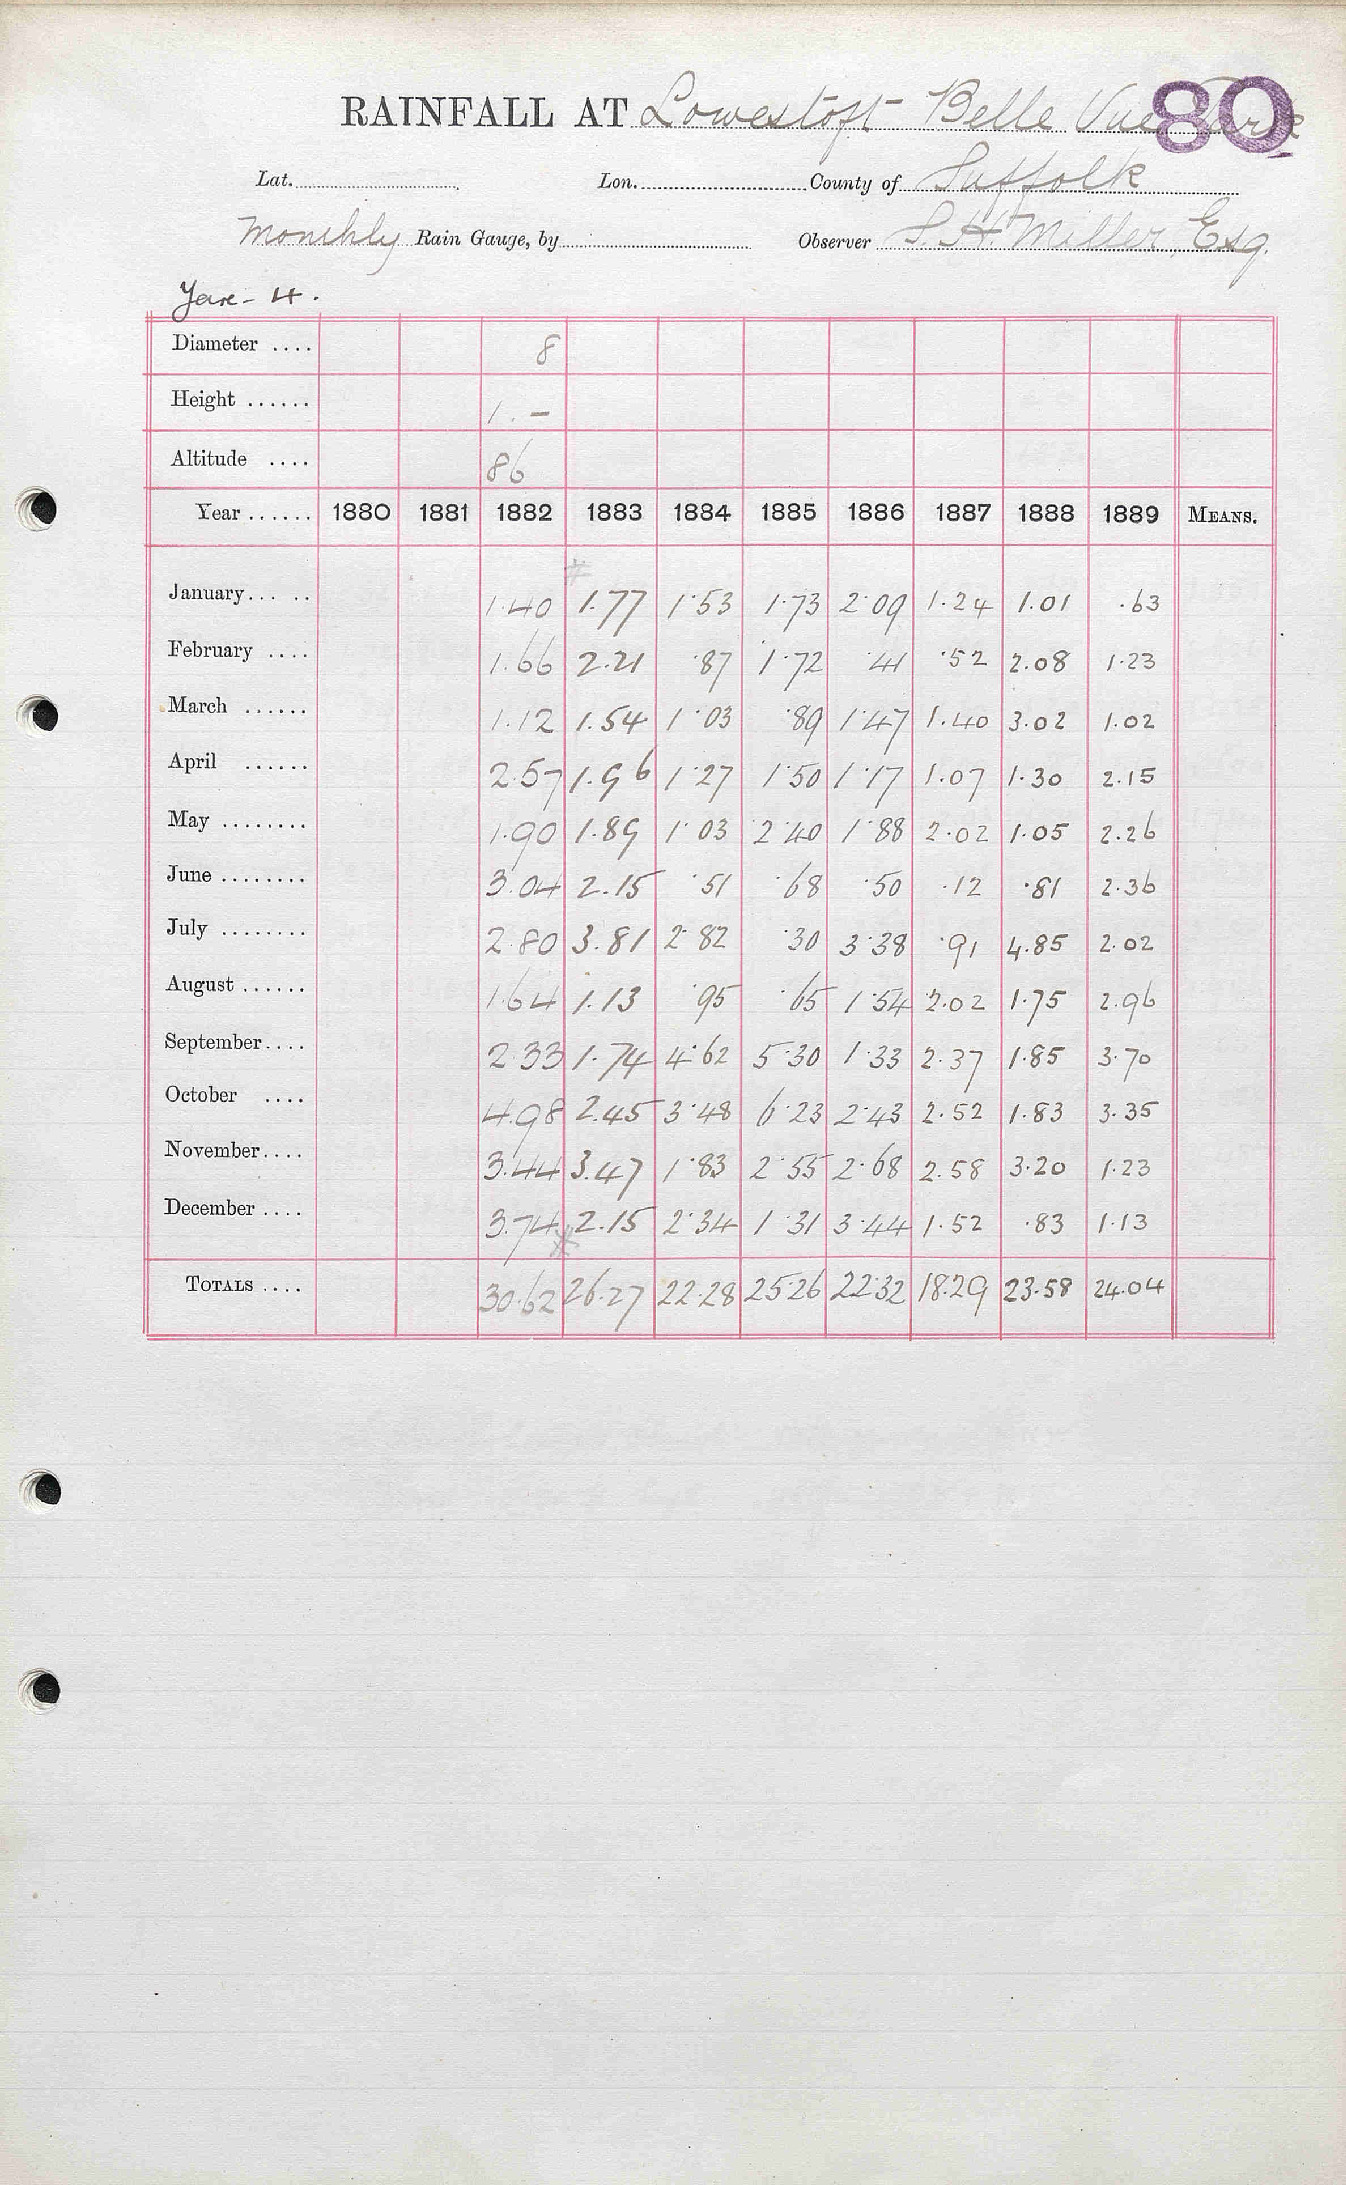 80
RAINFALL AT Lowestoft Belle Vue Park
Lat. Lon. County of Suffolk
Monthly Rain Gauge, by Observer S. H. Miller, Esq.
Yare - 4.
Diameter .... 8
Height ...... 1. -
Altitude .... 86
Year ...... 1880 1881 1882 1883 1884 1885 1886 1887 1888 1889 MEANS.
January... .. 1.40 1.77 1.53 1.73 2.09 1.24 1.01 .63
February .... 1.66 2.21 .87 1.72 .41 .52 2.08 1.23
March ...... 1.12 1.54 1.03 .89 1.47 1.40 3.02 1.02
April ...... 2.57 1.96 1.27 1.50 1.17 1.07 1.30 2.15
May ........ 1.90 1.89 1.03 2.40 1.88 2.02 1.05 2.26
June ........ 3.04 2.15 .51 .68 .50 .12 .81 2.36
July ........ 2.80 3.81 2.82 .30 3.38 .91 4.85 2.02
August ...... 1.64 1.13 .95 .65 1.54 2.02 1.75 2.96
September.... 2.33 1.74 4.62 5.30 1.33 2.37 1.85 3.70
October .... 4.98 2.45 3.48 6.23 2.43 2.52 1.83 3.35
November.... 3.44 3.47 1.83 2.55 2.68 2.58 3.20 1.23
December .... 3.74 2.15 2.34 1.31 3.44 1.52 .83 1.13
TOTALS .... 30.62 26.27 22.28 25.26 22.32 18.29 23.58 24.04